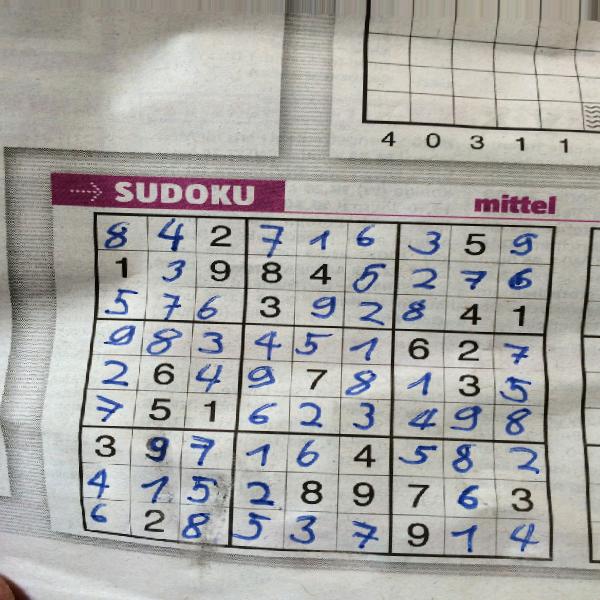 4 0 3 1 1
SUDOKU mittel
8 4 2 7 1 6 3 5 9
1 3 9 8 4 5 2 7 6
5 7 6 3 9 2 8 4 1
9 8 3 4 5 1 6 2 7
2 6 4 9 7 8 1 3 5
7 5 1 6 2 3 4 9 8
3 9 7 1 6 4 5 8 2
4 1 5 2 8 9 7 6 3
6 2 8 5 3 7 9 1 4